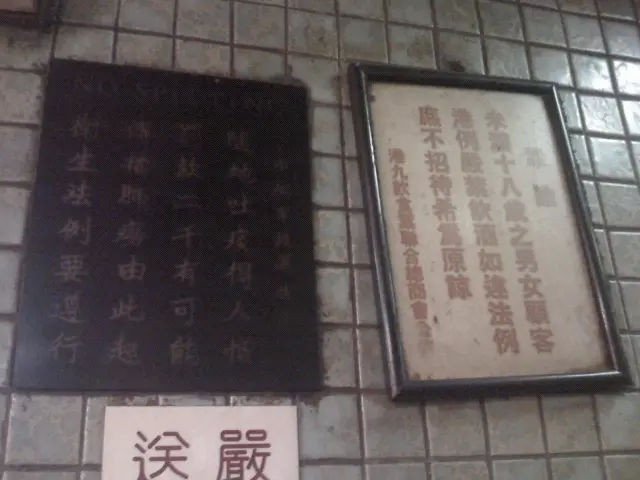 NO SPITTING
隨地吐痰得人怕
罰款二千有可能
傳播肺癆由此起
衛生法例要遵行
未滿十八歲之男女顧客
港例嚴禁飲酒如違法例
不招待希為原諒
港九飲食業聯合總商會
嚴
送